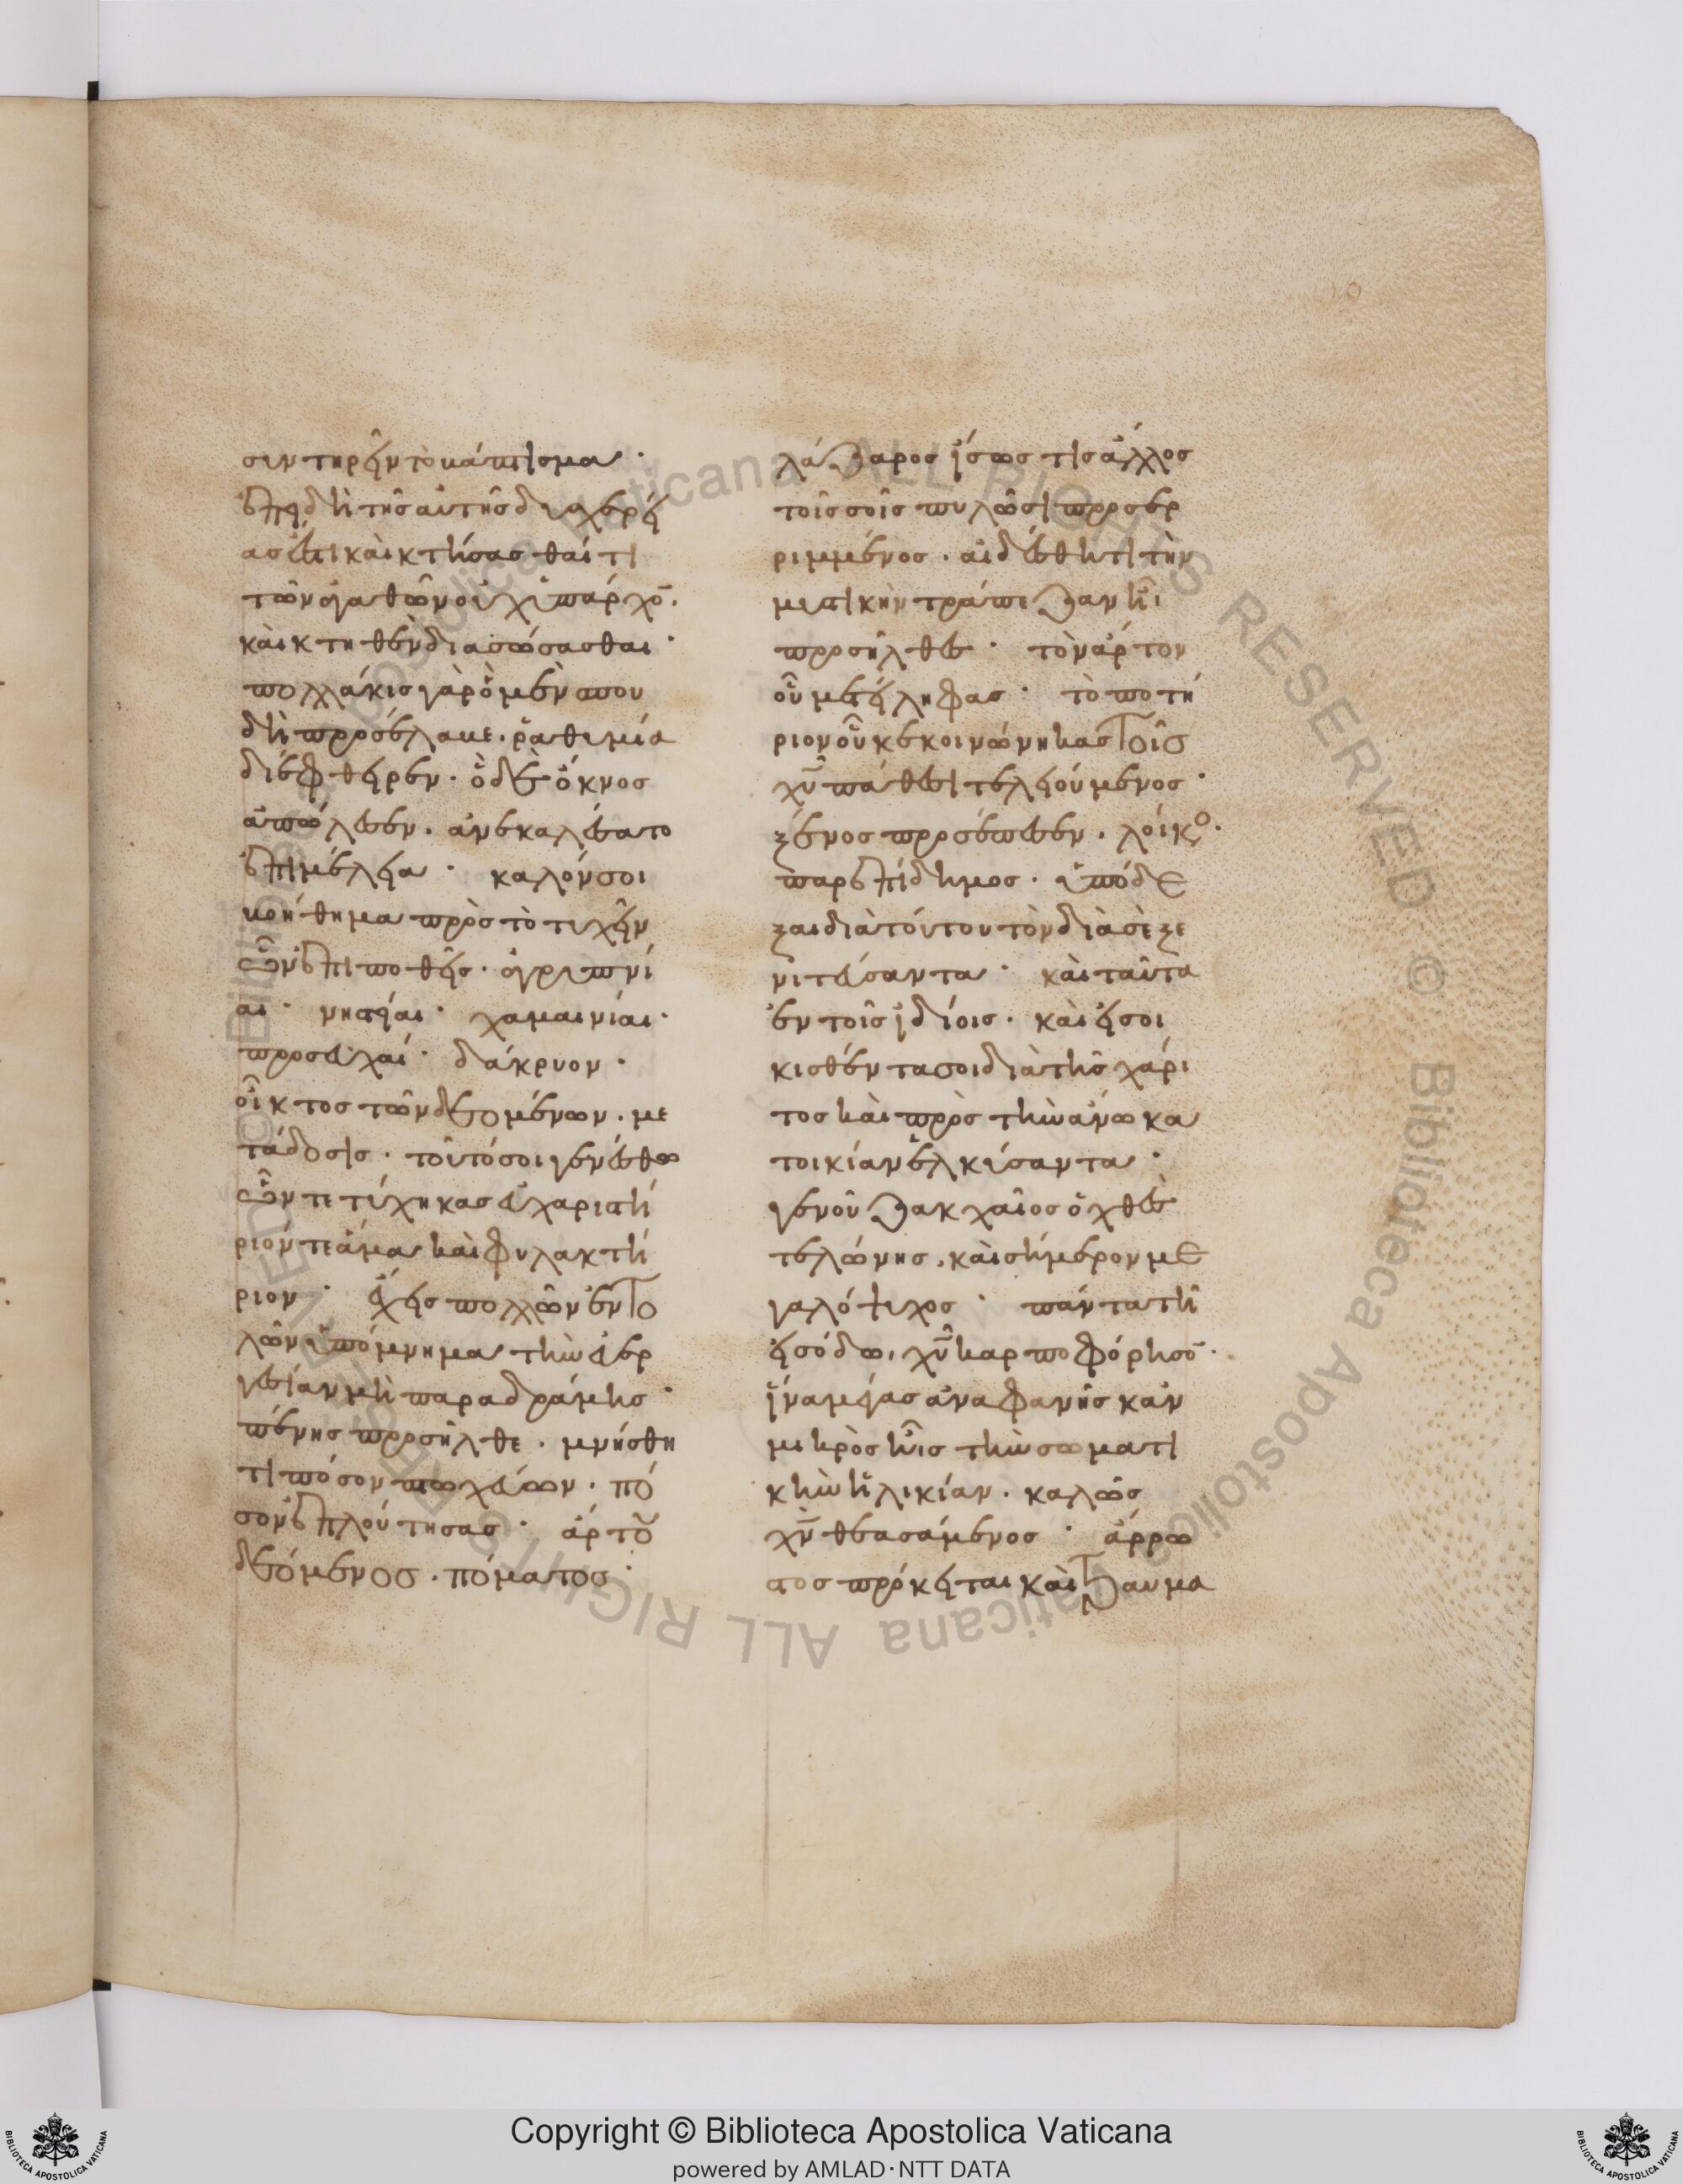 συντηρεῖν τὸ βάπτισμα·
ἐπειδὴ τῆς αὐτῆς δυσχερεί
ας ἐστι καὶ κτήσασθαί τι
τῶν ἀγαθῶν οὐχ ὑπάρχον.
καὶ κτηθὲν διασώσασθαι·
πολλάκις γὰρ ὃ μὲν σπου
δὴ προσέλαβε. ῥαθυμία
διέφθειρεν. ὃ δὲ ὄκνος
ἀπώλεσεν. ἀνεκαλέσατο
ἐπιμέλεια· καλόν σοι
βοήθημα πρὸς τὸ τυχεῖν
ὧν ἐπιποθεῖς. ἀγρυπνί
αι· νηστεῖαι· χαμευνίαι·
προσευχαί· δάκρυον·
οἶκτος τῶν δεομένων. με
τάδοσις. τοῦτό σοι γενέσθω
ὧν τετύχηκας εὐχαριστή
ριόν τε ἅμα καὶ φυλακτή
ριον· ἔχεις πολλῶν ἐντο
λῶν ὑπόμνημα τὴν εὐερ
γεσίαν μὴ παραδράμης·
πένης προσῆλθε. μνήσθη
τι πόσον πτωχεύων. πό
σον ἐπλούτησας· ἄρτου
δεόμενος. πόματος·
λάζαρος ἴσως τις ἄλλος
τοῖς σοῖς πυλῶσι προσερ
ριμμένος. αἰδέσθητι τὴν
μυστικὴν τράπεζαν ἧ
προσῆλθες· τὸν ἄρτον
οὗ μετείληφας· τὸ ποτή
ριον οὗ κεκοινώνηκας τοῖς
χυ πάθεσι τελειούμενος·
ξένος προσέπεσεν. ἄοικος.
παρεπίδημος. ὑπόδε
ξαι διὰ τούτου τὸν διὰ σὲ ξε
νιτεύσαντα· καὶ ταῦτα
ἐν τοῖς ἰδίοις. καὶ εἰσοι
κισθέντα σοι διὰ τῆς χάρι
τος καὶ πρὸς τὴν ἄνω κα
τοικίαν ἑλκύσαντα·
γενοῦ ζακχαῖος ὁ χθὲς
τελώνης. καὶ σήμερον με
γαλόψυχος· πάντα τῆ
εἰσόδω, χυ καρποφόρησον·
ἵνα μέγας ἀναφανῆς κἂν
μικρὸς ἦς τὴν σωματι
κὴν ἡλικίαν. καλῶς
χν θεασάμενος· ἄρρω
στος πρόκειται καὶ τραυμα